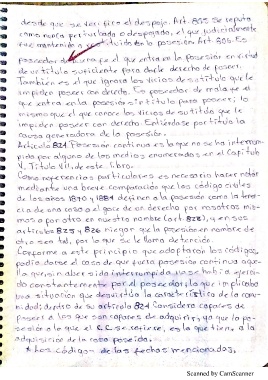 desde que se verifico el despojo. Art. 805 Se reputa
como nunca perturbado o despojado, el que judicialmente
fue mantenido o restituido la posesión. Art. 806. Es
poseedor de buena fe el que entra en la posesión en virtud
de un titulo suficiente para darle derecho de poseer.
También es el que ignora los vicios de su titulo que le
impiden poseer con derecho. Es poseedor de mala fe el
que entra en la posesión sin titulo para poseer; lo
mismo que el que conoce los vicios de su titulo que le
impiden poseer con derecho. Entiéndase por titulo la
causa generadora de la posesión.
Articulo 824 Posesión continua es la que no se ha interrum-
pido por alguno de los medios enumerados en el Capitulo
V, Titulo VII, de este libro.
Como sugerencias particulares es necesario hacer notar
mediante una breve comparación que los código civiles
de los años 1870 y 1884 definen a la posesión como la tenen-
cia de una cosa o el goce de un derecho por nosotros mis-
mos o por otro en nuestro nombre (art. 822), y en sus
articulos 825 y 826 niegan que la posesión en nombre de
otro sea tal, por lo que se le llama detención.
Conforme a este principio que adoptaron los códigos,
podia darse el caso de que para la posesión continua aque-
lla que sin aber sido interrumpida, se habia ejerci-
do constantemente por el poseedor, lo que implicaba
una situación que desvirtúa la caracteristica de la conti-
nuidad; dentro de su articulo 824 Considera capaces de
poseer a los que son capaces de adquirir, ya que la po-
sesión a la que el C.C. se refiere, es la que tiene a la
adquisición de la cosa poseida.
* Los códigos de las fechas mencionados,
Scanned by CamScanner